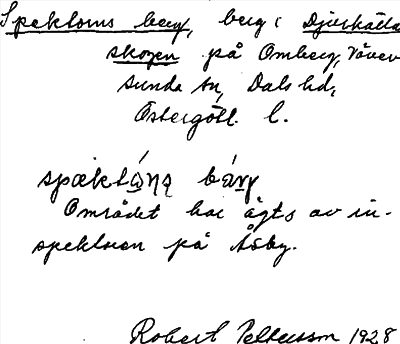 Spektorns berg, berg i Djurkälla
skogen på Omberg, Röver
sunda sn, Dals hd,
Östergötl. l.
spæktǫ́ŋą bárγ
Området har ägts av in-
spektoren på Åsby.
Robert Pettersson 1928